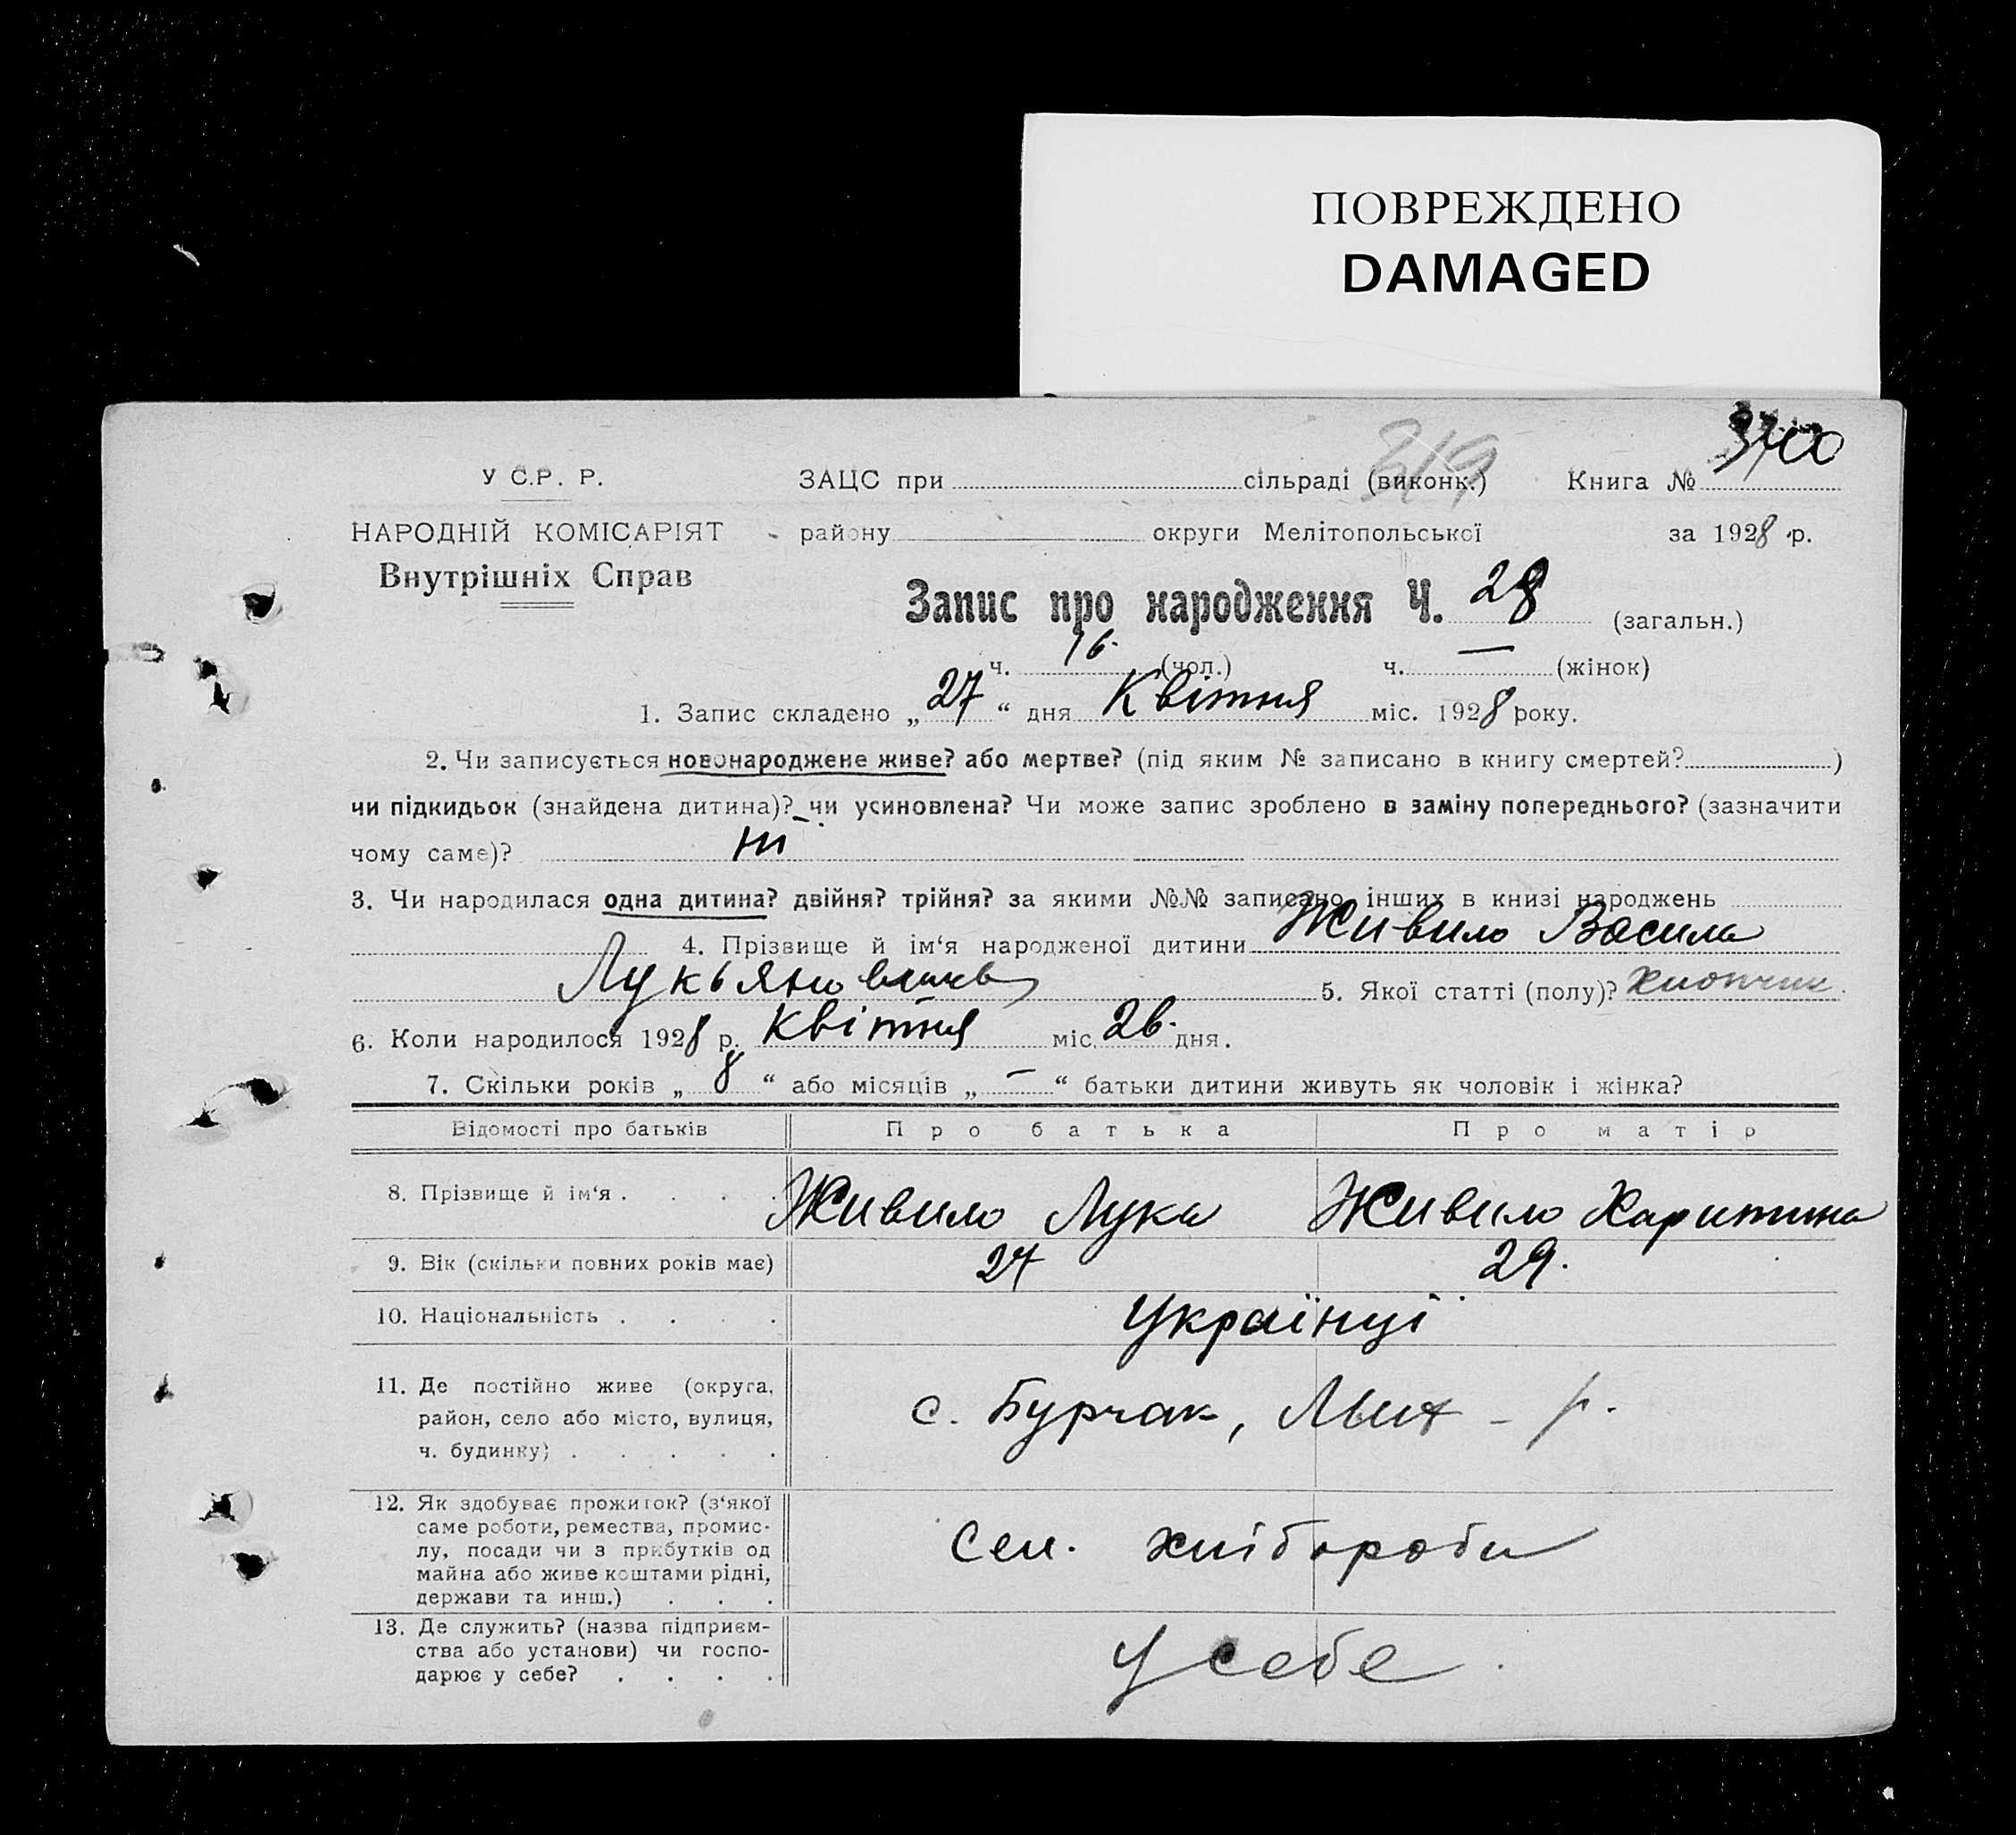 ПОВРЕЖДЕНО
DAMAGED
319
У С.Р. Р.
ЗАЦС при сільраді (виконк.) Книга №
НАРОДНІЙ КОМІСАРІЯТ
району округи Мелітопольської за 1928 р.
Внутрішніх Справ
Запис про народження Ч. 28 (загальн.)
ч. 16. (чол.) ч. — (жінок)
1. Запис складено „27“ дня Квітня міс. 1928 року.
2. Чи записується новонароджене живе? або мертве? (під яким № записано в книгу смертей? )
чи підкидьок (знайдена дитина)? чи усиновлена? Чи може запис зроблено в заміну попереднього? (зазначити
чому саме)? ні
3. Чи народилася одна дитина? двійня? трійня? за якими №№ записано інших в книзі народжень
4. Прізвище й ім‘я народженої дитини Живило Васила
Лукьянович 5. Якої статті (полу)? хлопчик.
6. Коли народилося 1928 р. Квітня міс. 26. дня.
7. Скільки років „8“ або місяців „—“ батьки дитини живуть як чоловік і жінка?
Відомості про батьків Про батька Про матір
8. Прізвище й ім‘я . . . . Живило Лука Живило Харитина
9. Вік (скільки повних років має) 27 29.
10. Національність . . . . Українці
11. Де постійно живе (округа,
район, село або місто, вулиця,
ч. будинку) . . . . .
с. Бурчак, Мих - р.
12. Як здобуває прожиток? (з‘якої
саме роботи, ремества, промис-
лу, посади чи з прибутків од
майна або живе коштами рідні,
держави та инш.) . . .
Сел. хлібороби
13. Де служить? (назва підприєм-
ства або установи) чи госпо-
дарює у себе? . . . .
У себе.